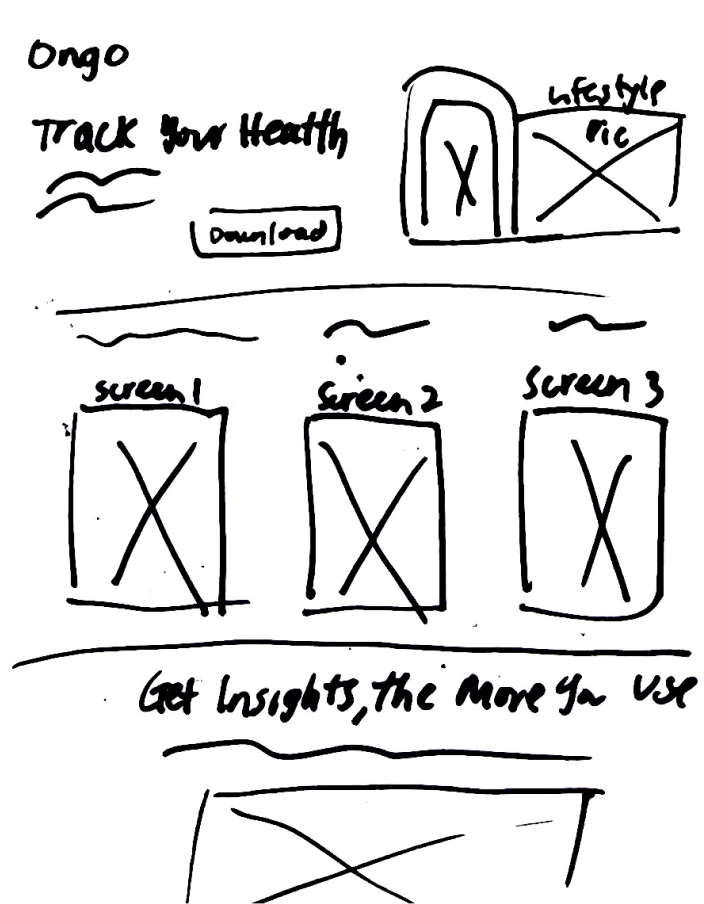 Ongo
Track Your Health
Lifestyle
Pic
Download
Screen 1
Screen 2
Screen 3
Get Insights, the More You Use